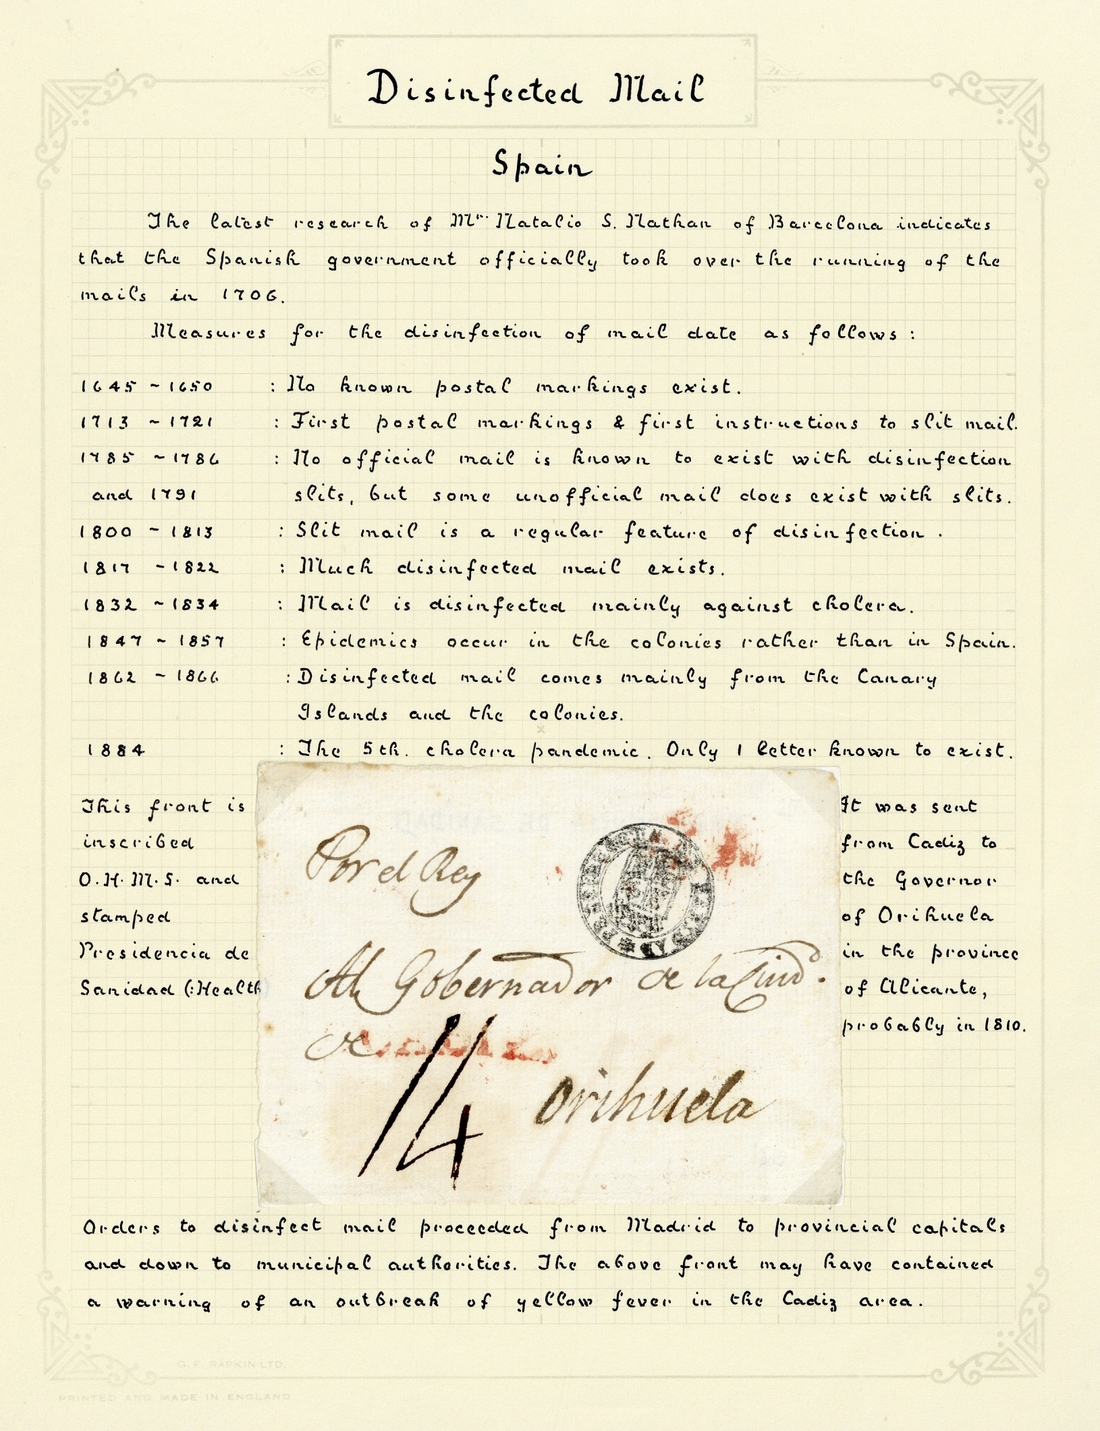 Disinfected Mail
Spain
The latest research of Mr. Natalio S. Nathan of Barcelona indicates
that the Spanish government officially took over the running of the
mails in 1706.
Measures for the disinfection of mail date as follows :
1645 ~ 1650 : No known postal markings exist.
1713 ~ 1721 : First postal markings & first instructions to slit mail.
1785 ~ 1786 : No official mail is known to exist with disinfection
and 1791 slits, but some unofficial mail does exist with slits.
1800 ~ 1813 : Slit mail is a regular feature of disinfection .
1817 ~ 1822 : Much disinfected mail exists.
1832 ~ 1834 : Mail is disinfected mainly against cholera.
1847 ~ 1857 : Epidemics occur in the colonies rather than in Spain.
1862 ~ 1866 : Disinfected mail comes mainly from the Canary
Islands and the colonies.
1884 : The 5th. cholera pandemic. Only 1 letter known to exist.
This front is
inscribed
O.H.M.S. and
stamped
Presidencia de
Sanidad (:Health
Por el Rey
Al Gobernador de la Ciud.
de
14 Orihuela
It was sent
from Cadiz to
the Governor
of Orihuela
in the province
of Alicante,
probably in 1810.
Orders to disinfect mail proceeded from Madrid to provincial capitals
and down to municipal authorities. The above front may have contained
a warning of an outbreak of yellow fever in the Cadiz area.
G. F. RAPKIN LTD.
PRINTED AND MADE IN ENGLAND